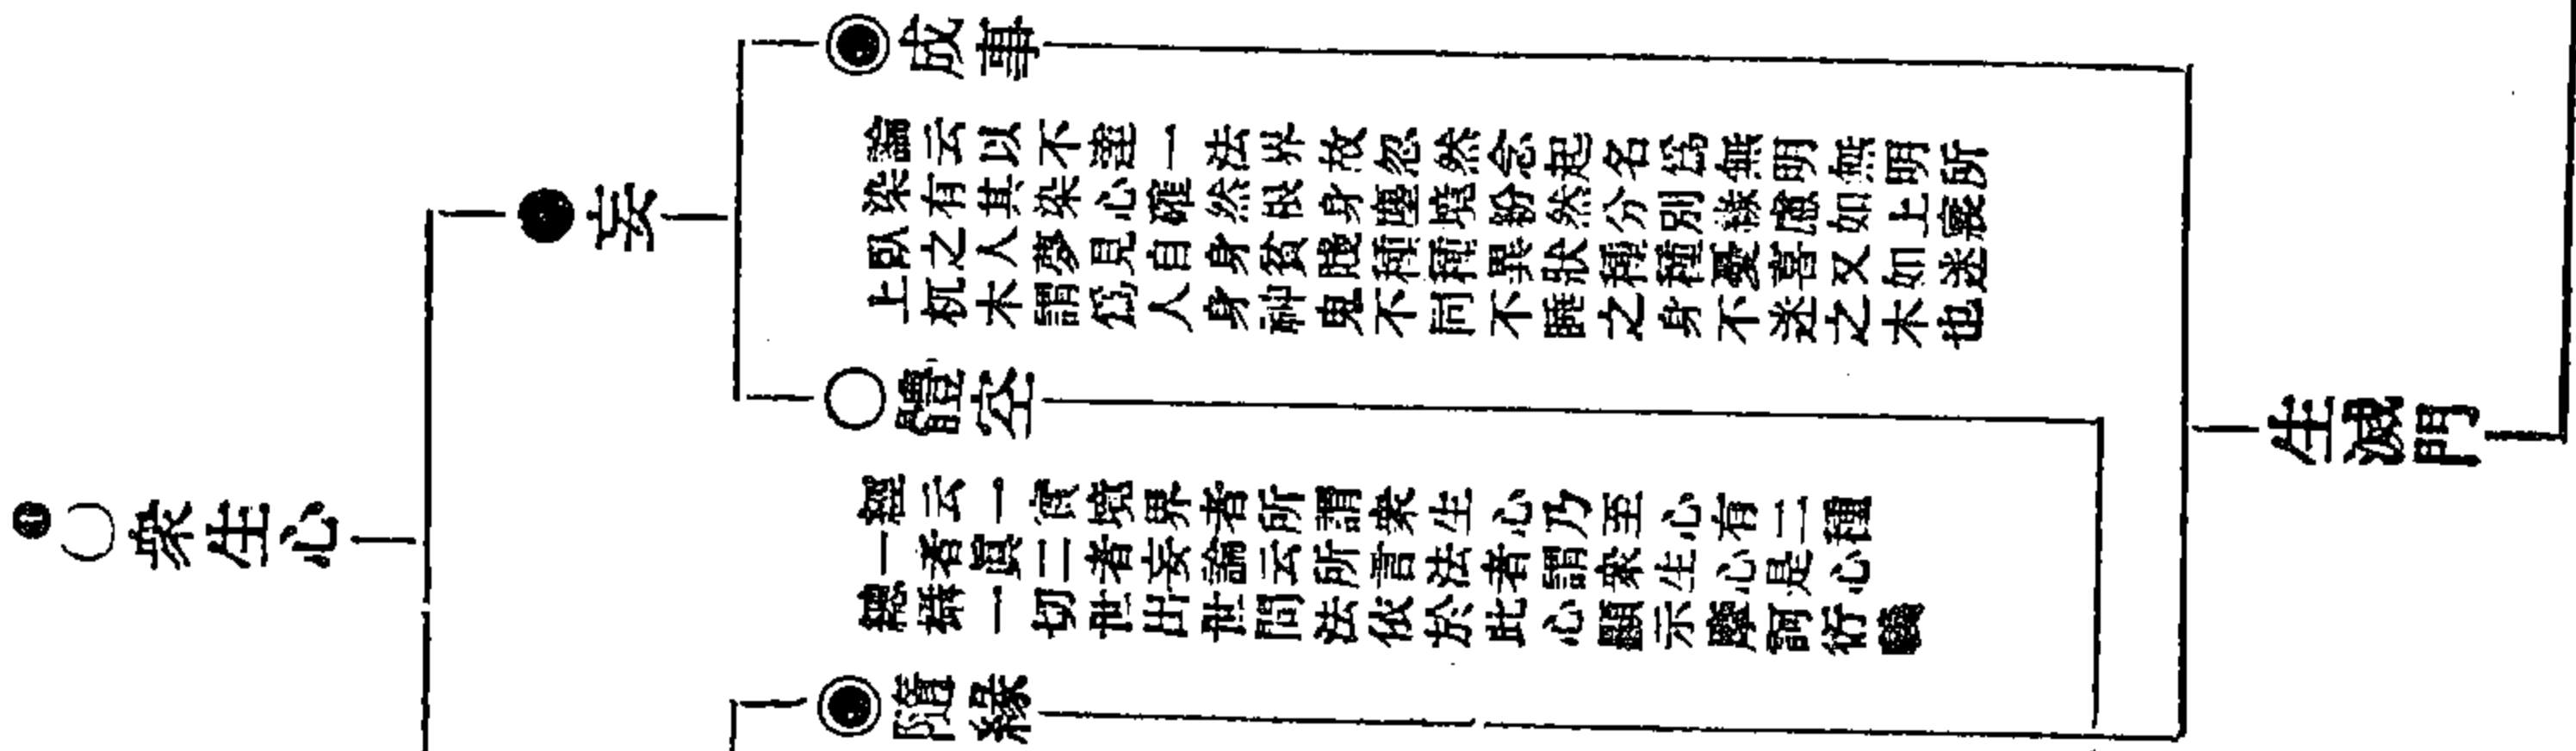 生滅門
成事
論云以不達一法界故忽然念起名爲無明無明所
染有其染心確然根身塵境紛然分別緣慮如上裹
臥之人夢見自身貧賤種種異狀種種憂喜又如迷
上机木謂爲人身神鬼不同不睡之身不迷之木也
妄
體空
經云一境界者所謂衆生心乃至心有二種
一者眞二者妄論云所言法者謂衆生心是心
總攝一切世出世間法依於此心顯示摩訶衍義
衆生心
隨緣